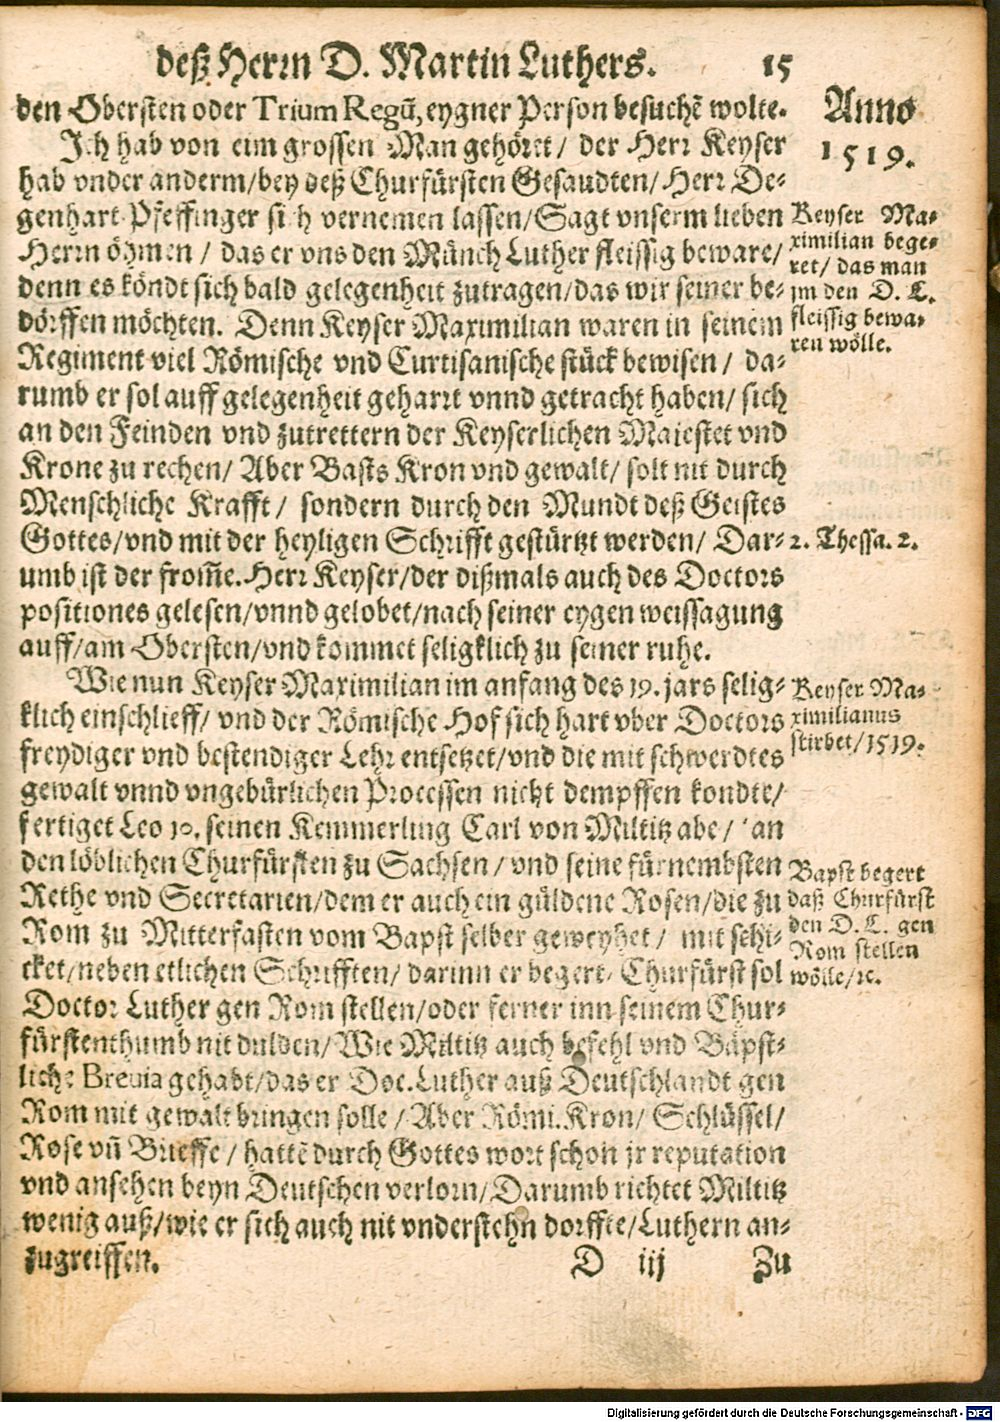 deß Herrn D. Martin Luthers. 15
den Obersten oder Trium Regũ, eygner Person besuchẽ wolte.
Ich hab von eim grossen Man gehöret/ der Herr Keyser
hab vnder anderm/bey deß Churfürsten Gesandten/ Herr De-
genhart Pfeffinger sich vernemen lassen/Sagt vnserm lieben
Herrn öhmen / das er vns den Münch Luther fleissig beware/
denn es köndt sich bald gelegenheit zutragen/das wir seiner be-
dörffen möchten. Denn Keyser Maximilian waren in seinem
Regiment viel Römische vnd Curtisanische stück bewisen / da-
rumb er sol auff gelegenheit geharrt vnnd getracht haben/ sich
an den Feinden vnd zutrettern der Keyserlichen Maiestet vnd
Krone zu rechen/ Aber Basts Kron vnd gewalt/ solt nit durch
Menschliche Krafft/ sondern durch den Mundt deß Geistes
Gottes/vnd mit der heyligen Schrifft gestürtzt werden/ Dar-
umb ist der from̃e. Herr Keyser/der dißmals auch des Doctors
positiones gelesen/vnnd gelobet/nach seiner eygen weissagung
auff/am Obersten/vnd kommet seligklich zu seiner ruhe.
Wie nun Keyser Maximilian im anfang des 19. jars selig-
klich einschlieff/ vnd der Römische Hof sich hart vber Doctors
freydiger vnd bestendiger Lehr entsetzet/vnd die mit schwerdtes
gewalt vnnd vngebürlichen Processen nicht dempffen kondte/
fertiget Leo 10. seinen Kemmerling Carl von Miltitz abe/ an
den löblichen Churfürsten zu Sachsen / vnd seine fürnembsten
Rethe vnd Secretarien/dem er auch ein güldene Rosen/die zu
Rom zu Mitterfasten vom Bapst selber geweyhet / mit schi-
cket/neben etlichen Schrifften/ darinn er begert/ Churfürst sol
Doctor Luther gen Rom stellen/oder ferner inn seinem Chur-
fürstenthumb nit dulden/ Wie Miltitz auch befehl vnd Bäpst-
liche Breuia gehabt/das er Doc.Luther auß Deutschlandt gen
Rom mit gewalt bringen solle / Aber Römi.Kron/ Schlüssel/
Rose vñ Brieffe / hattẽ durch Gottes wort schon jr reputation
vnd ansehen beyn Deutschen verlorn/Darumb richtet Miltitz
wenig auß/wie er sich auch nit vnderstehn dorffte/Luthern an-
zugreiffen.
D iij Zu
Anno
1519.
Keyser Ma-
ximilian bege-
ret/ das man
jm den D. L.
fleissig bewa-
ren wölle.
2. Thessa. 2.
Keyser Ma-
ximilianus
stirbet/1519.
Bapst begert
daß Churfürst
den D. L. gen
Rom stellen
wölle/ꝛc.
Digitalisierung gefördert durch die Deutsche Forschungsgemeinschaft - DFG